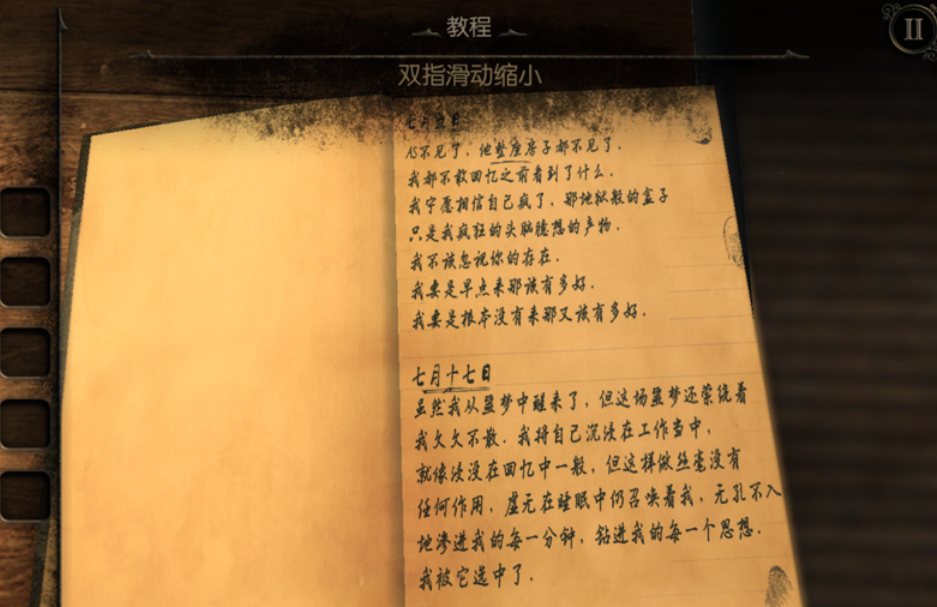 教程
II
双指滑动缩小
七月五日
AS不见了，他整座房子都不见了．
我都不敢回忆之前看到了什么．
我宁愿相信自己疯了，那地狱般的盒子
只是我疯狂的头脑臆想的产物．
我不该忽视你的存在．
我要是早点来那该有多好．
我要是根本没有来那又该有多好．
七月十七日
虽然我从噩梦中醒来了，但这场噩梦还萦绕着
我久久不散．我将自己沉浸在工作当中，
就像浸没在回忆中一般，但这样做丝毫没有
任何作用，虚无在睡眠中仍召唤着我，无孔不入
地渗进我的每一分钟，钻进我的每一个思想．
我被它选中了．